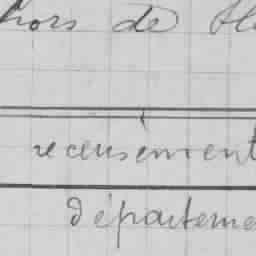 hors de
recensement
départeme